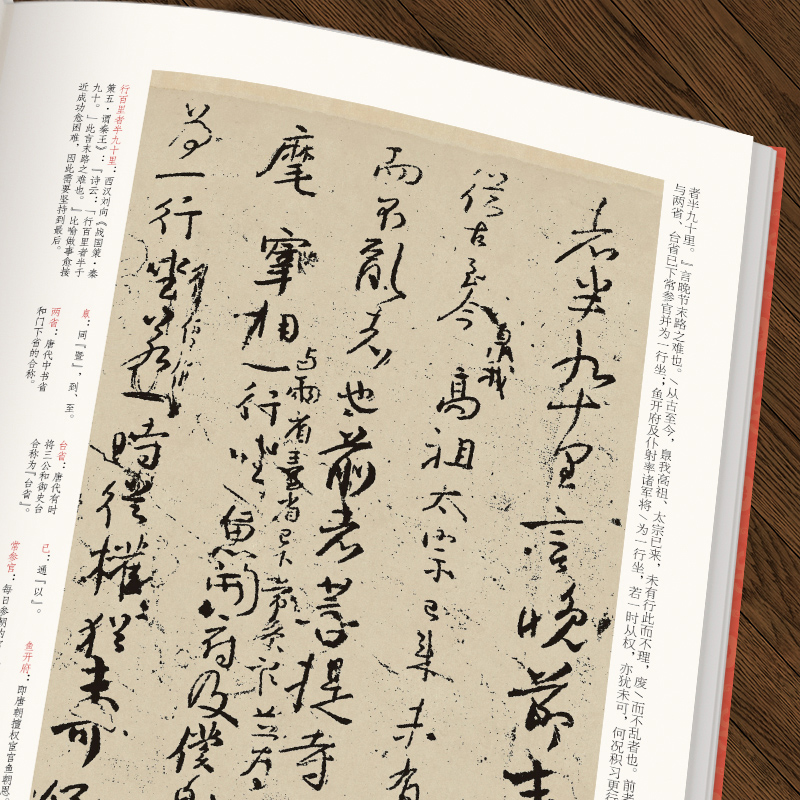 者半九十里。』言晚节末路之难也。\从古至今，暨我高祖、太宗已来，未有行此而不理，废\而不乱者也。前者
与两省、台省已下常参官并为一行坐；鱼开府及仆射率诸军将\为一行坐，若一时从权，亦犹未可，何况积习更行
者半九十里言晚節末
從古至今暨我高祖太宗已來未有
而不亂者也前者菩提寺
與兩省臺省已下常參官並為
麾宰相一行坐魚開府及僕
為一行坐若一時從權猶未可何
行百里者半九十里：西汉刘向《战国策·秦
策五·谓秦王》：『诗云：「行百里者半于
九十。」此言末路之难也。』比喻做事愈接
近成功愈困难，因此需要坚持到最后。
息：同『暨』，到、至。
两省：唐代中书省
和门下省的合称。
台省：唐代有时
将三公和御史台
合称为『台省』。
已：通『以』。
常参官：每日参朝的
鱼开府：即唐朝擅权宦官鱼朝恩。